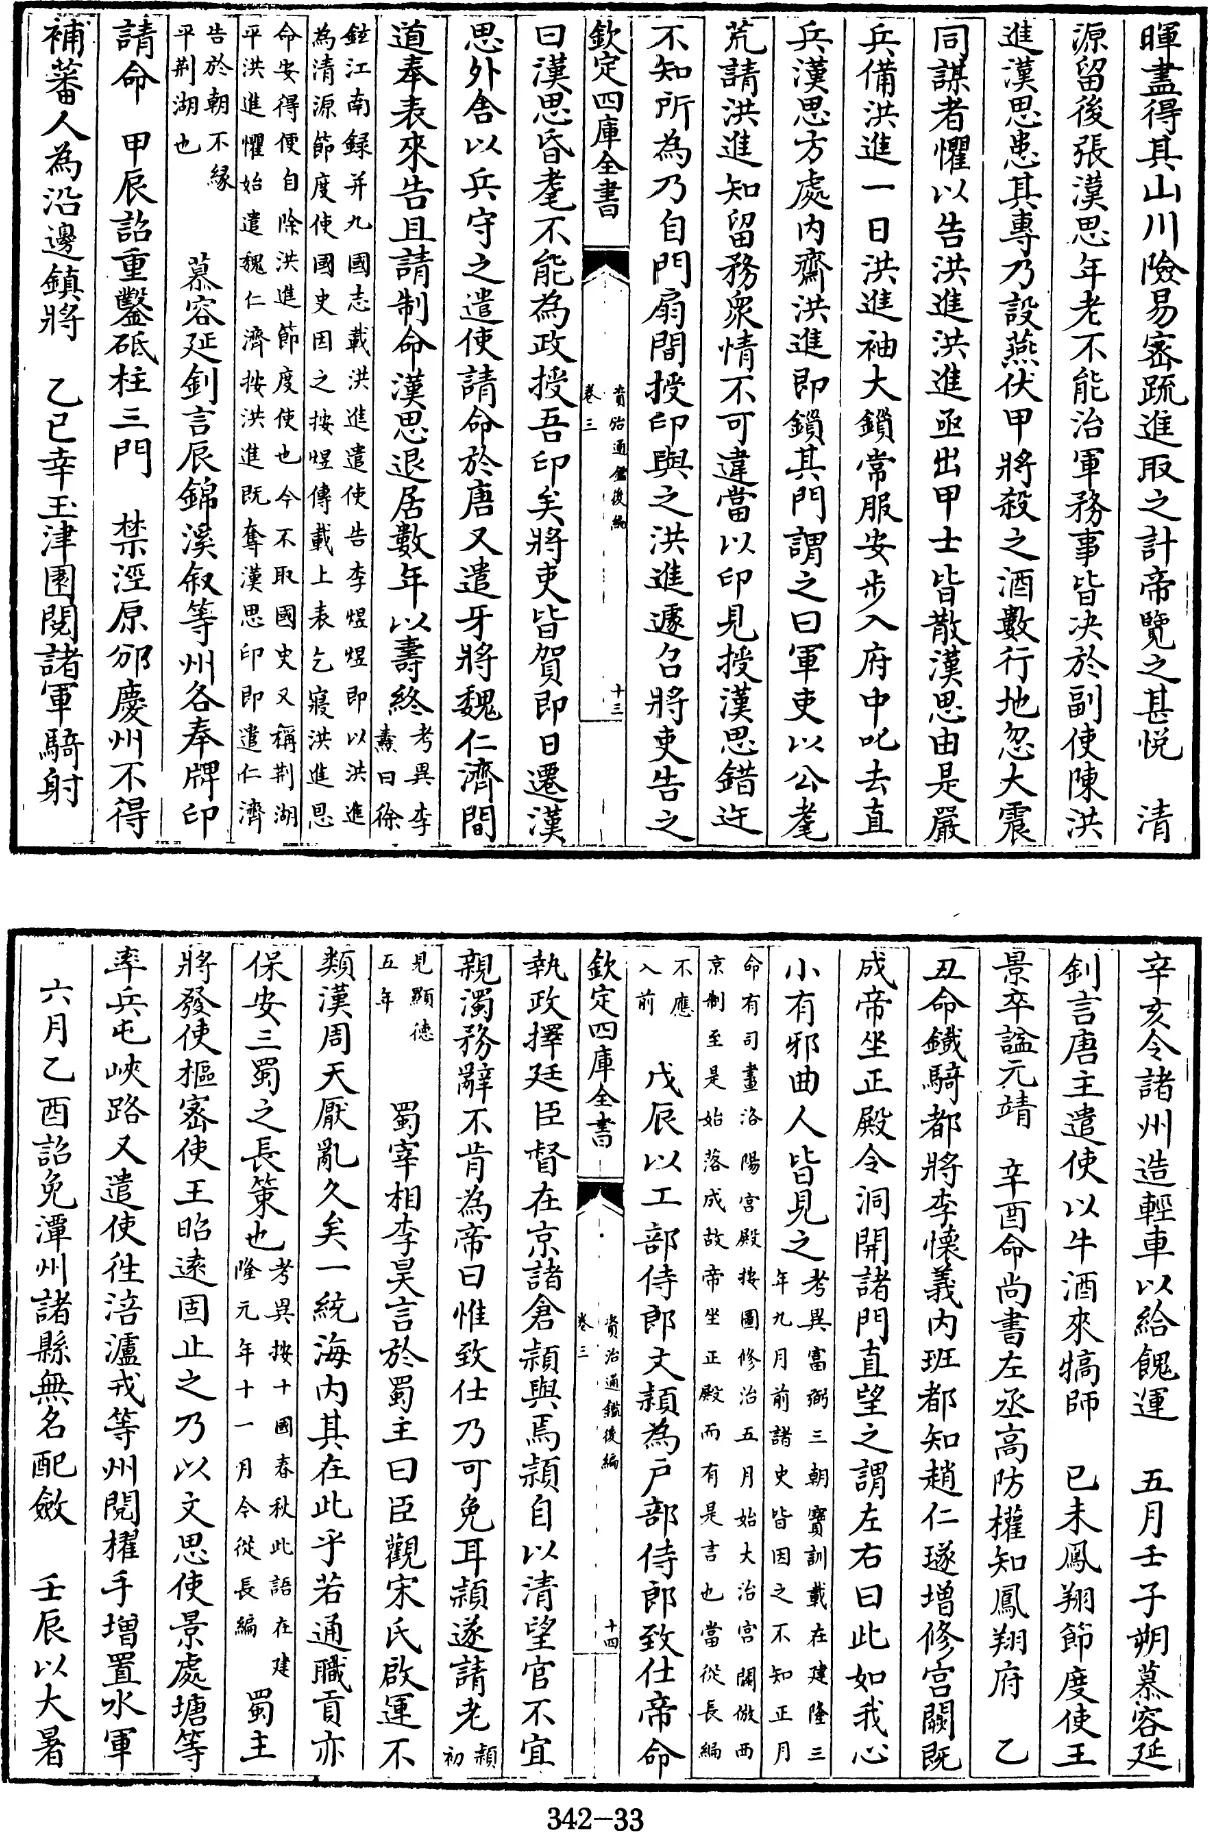 暉盡得其山川險易密疏進取之計帝覽之甚悅　清
源留後張漢思年老不能治軍務事皆决於副使陳洪
進漢思患其專乃設燕伏甲將殺之酒數行地忽大震
同謀者懼以告洪進洪進亟出甲士皆散漢思由是嚴
兵備洪進一日洪進袖大鎖常服安步入府中叱去直
兵漢思方處内齋洪進即鎖其門謂之曰軍吏以公耄
荒請洪進知留務衆情不可違當以印見授漢思錯迕
不知所為乃自門扇間授印與之洪進遽召將吏告之
欽定四庫全書　資治通鑑後編　卷三　十三
曰漢思昏耄不能為政授吾印矣將吏皆賀即日遷漢
思外舍以兵守之遣使請命於唐又遣牙將魏仁濟間
道奉表來告且請制命漢思退居數年以壽終考異李
燾曰徐
鉉江南録并九國志載洪進遣使告李煜煜即以洪進
為清源節度使國史因之按煜傳載上表乞寢洪進恩
命安得便自除洪進節度使也今不取國史又稱荆湖
平洪進懼始遣魏仁濟按洪進既奪漢思印即遣仁濟
告於朝不縁
平荆湖也　慕容延釗言辰錦溪叙等州各奉牌印
請命　甲辰詔重鑿砥柱三門　禁涇原邠慶州不得
補蕃人為沿邊鎮將　乙巳幸玉津園閲諸軍騎射
辛亥令諸州造輕車以給餽運　五月壬子朔慕容延
釗言唐主遣使以牛酒來犒師　己未鳳翔節度使王
景卒諡元靖　辛酉命尚書左丞高防權知鳳翔府　乙
丑命鐵騎都將李懷義内班都知趙仁璲增修宫闕既
成帝坐正殿令洞開諸門直望之謂左右曰此如我心
小有邪曲人皆見之考異富弼三朝寶訓載在建隆三
年九月前諸史皆因之不知正月
命有司畫洛陽宫殿按圖修治五月始大治宫闕倣西
京制至是始落成故帝坐正殿而有是言也當從長編
不應
入前　戊辰以工部侍郎文頴為戸部侍郎致仕帝命
欽定四庫全書　資治通鑑後編　卷三　十四
執政擇廷臣督在京諸倉頴與焉頴自以清望官不宜
親濁務辭不肯為帝曰惟致仕乃可免耳頴遂請老頴
初
見顯德
五年　蜀宰相李昊言於蜀主曰臣觀宋氏啟運不
類漢周天厭亂久矣一統海内其在此乎若通職貢亦
保安三蜀之長策也考異按十國春秋此語在建
隆元年十一月今從長編　蜀主
將發使樞密使王昭遠固止之乃以文思使景處塘等
率兵屯峽路又遣使徃涪瀘戎等州閲櫂手增置水軍
六月乙酉詔免潭州諸縣無名配斂　壬辰以大暑
342-33